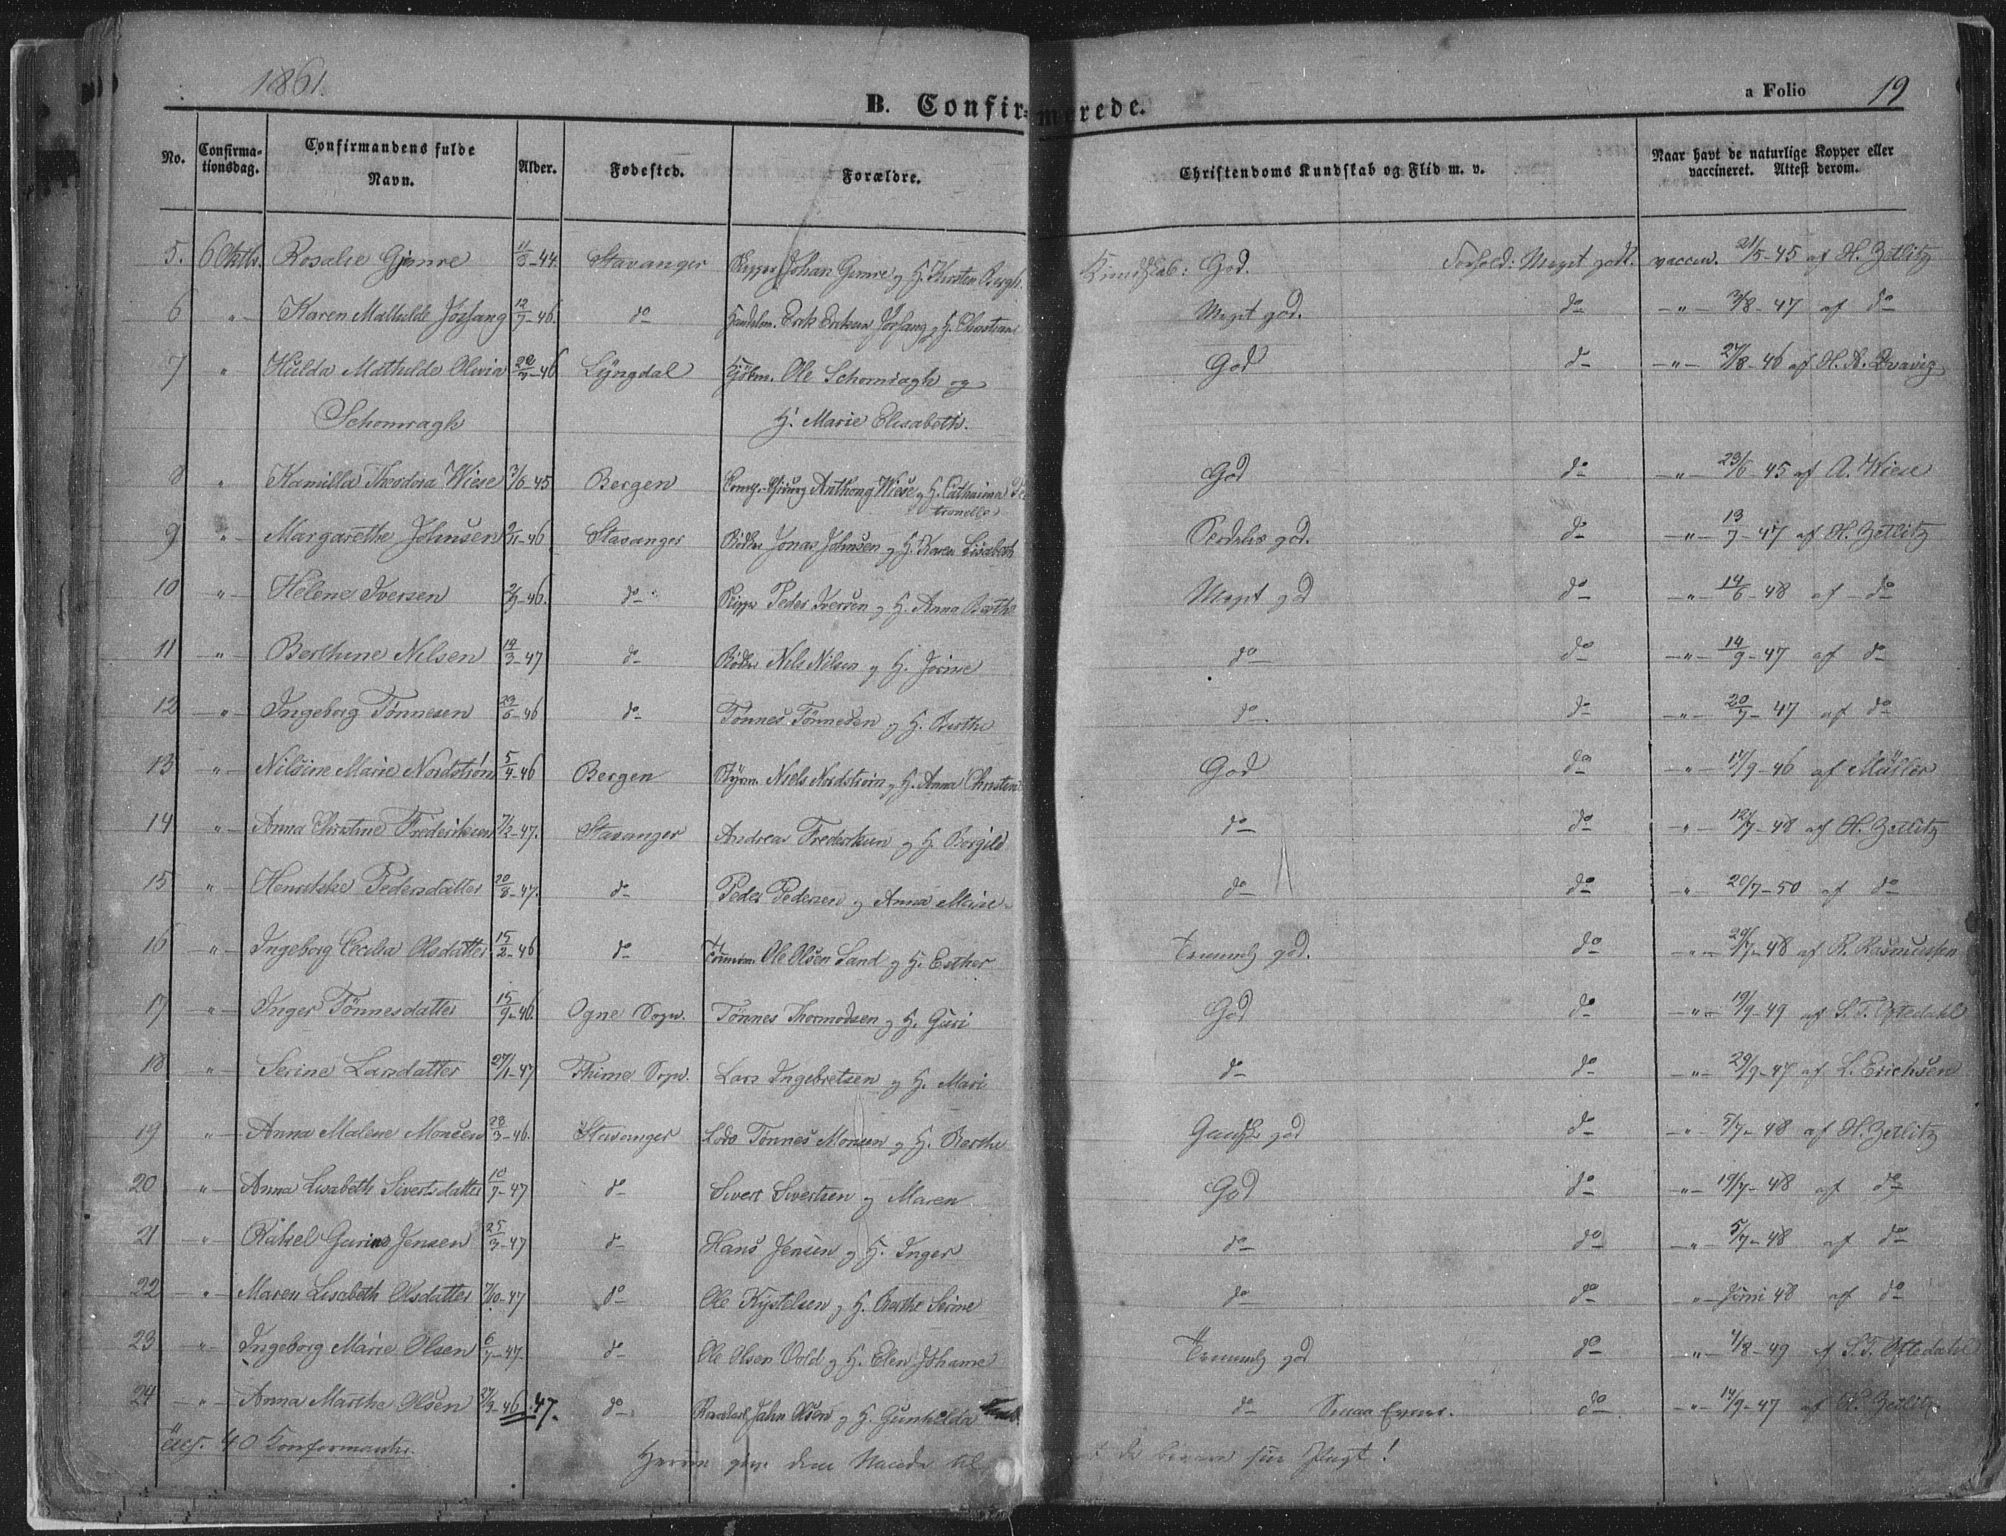 1861.
B. Confirmerede.
a Folio 19
No. Confirmationsdag. Confirmandens fulde Navn. Alder. Fødested. Forældre. Christendoms Kundskab og Flid m. v. Naar havt de naturlige Kopper eller vaccineret. Attest derom.
5. 6 Oktb. Rosalie Gjemre 11/8-44 Stavanger Johan Gemre og H. Kirsten Bergh. Kundskab: God. Forhold: Meget godt. vaccin. 21/5-45 af H. Zetlitz
6 " Karen Mathilde Jørsang 12/7-46. do Erik Eriksen Jørsang og H. Christiane Meget god. do " 3/8-47 af do
7 " Hulda Mathilde Olivia 22/3-46 Lyngdal Kjøbm. Ole Schomragh og God do " 24/8-46 af H. A. Qvavig
Schomragh H. Marie Elisabeth.
8 " Kamilla Theodora Wiese 3/6-45 Bergen Anthony Wiese og H. Catharina Petronelle God do " 23/6-45 af A. Wiese
9 " Margarethe Johnsen 2/11-46 Stavanger Bødker Jonas Johnsen og H. Karen Lisabeth Særdeles god. do " 13/7-47 af H. Zetlitz
10 " Helene Iversen 2/9-46. do Skipper Peder Iversen og H. Anna Berthe Meget god do " 14/6-48 af do
11 " Berthine Nilsen 14/3-47 do Bødker Nels Nilsen og H. Jorine do do " 14/9-47 af do
12 " Ingeborg Tønnesen 23/6-46 do Tønnes Tønnesen og H. Berthe do. do " 20/7-47 af do
13 " Nilsine Marie Nordstrøm 5/4-46 Bergen Styrm. Niels Nordstrøm og H. Anna Christen God do " 17/9-46 af Müller
14 " Anna Christine Frederiksen 7/2-47. Stavanger Andreas Frederiksen og H. Borgild do do " 12/7-48 af H. Zetlitz
15 " Henrikke Pedersdatter 20/8-47. do Peder Pedersen og Anna Marie do do " 20/7-50 af do
16 " Ingeborg Cecilia Olsdatter 15/2-46 do Tømmerm. Ole Olsen Sand og H. Esther Temmelig god. do " 20/7-48 af R. Rasmussen
17 " Inger Tønnesdatter 15/9-46. Ogne Sogn. Tønnes Thormodsen og H. Guri God do " 19/9-49 af S. T. Oftedahl
18 " Serine Larsdatter 27/1-47 Thime Sogn. Lars Ingebretsen og H. Mari do do " 29/9-47 af L. Erichsen
19 " Anna Malene Monsen 28/3-46. Stavanger Lods Tønnes Monsen og H. Berthe Ganske god do " 5/7-48 af H. Zetlitz
20 " Anna Lisabeth Sivertsdatter 10/7-47 do Sivert Sivertsen og Maren God do " 19/7-48 af do
21 " Rakel Gurine Jensen 25/3-47 do Hans Jensen og H. Inger do do " 5/7-48 af do
22 " Maren Lisabeth Olsdatter 7/10-47 do Ole Kjetelsen og H. Berthe Serine do do " Juni 48 af do
23 " Ingeborg Marie Olsen 6/7-47. do Ole Olsen Vold og H. Elen Johanne Temmelig god do " 4/8-49 af S. T. Oftedahl
24 " Anna Marthe Olsen 27/3-46.47. do John Olsen og H. Gunhilda do Smaa Evner. do " 14/9-47 af H. Zetlitz
40 Konfirmanter. Herren give dem Naade til